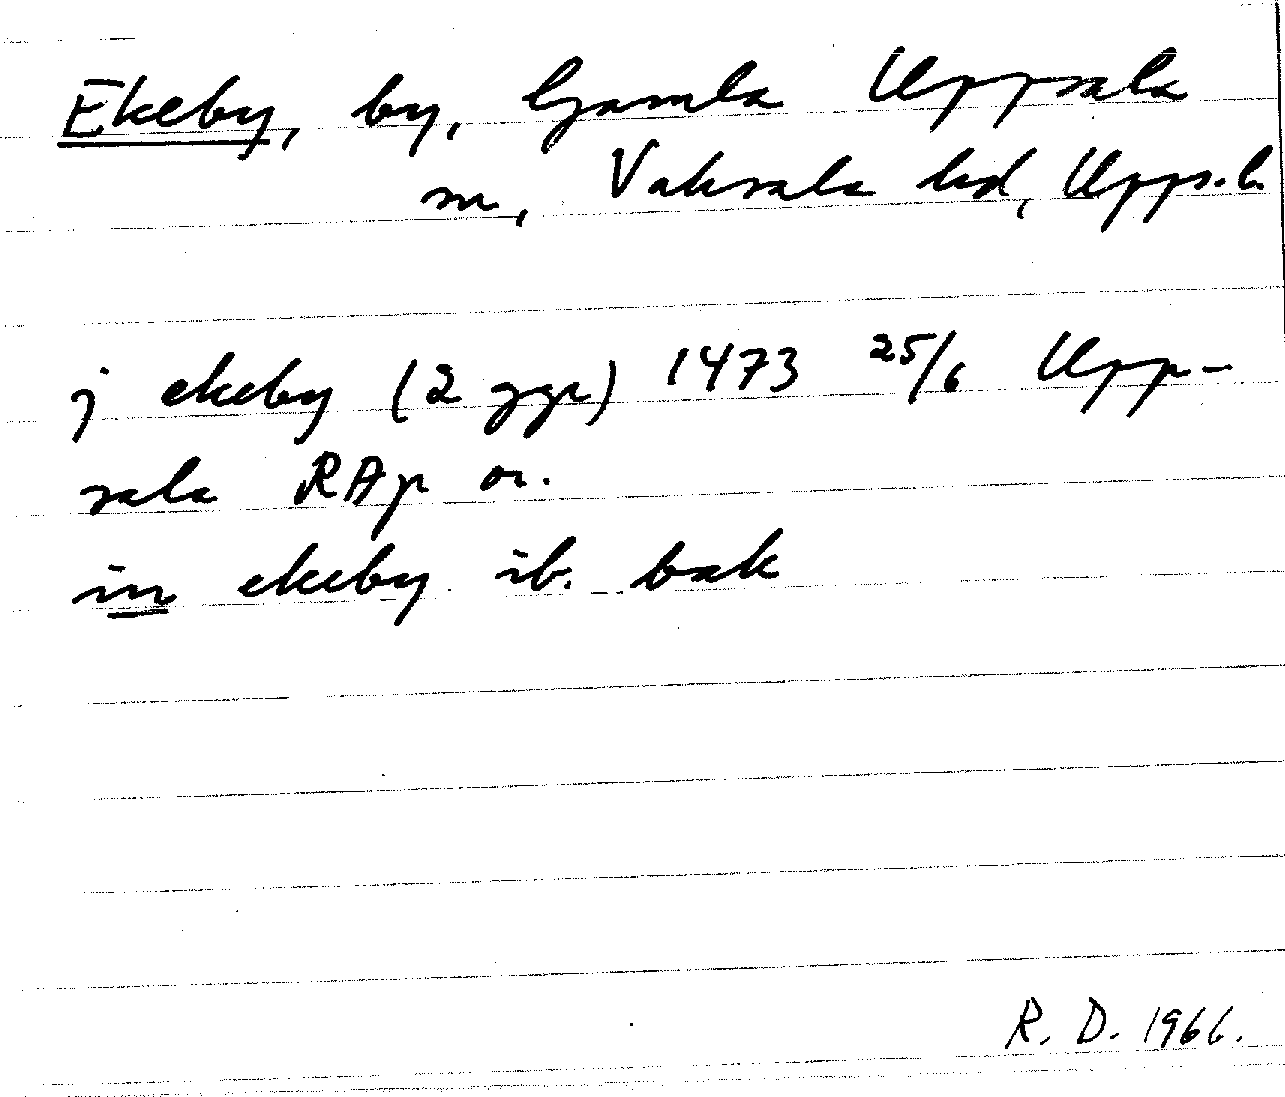 Ekeby, by, Gamla Uppsala
sn, Vaksala hd, Upps. l.
j ekeby (2 ggr) 1473 25/6 Upp-
sala RAp or.
in ekeby ib. bak
R. D. 1966.